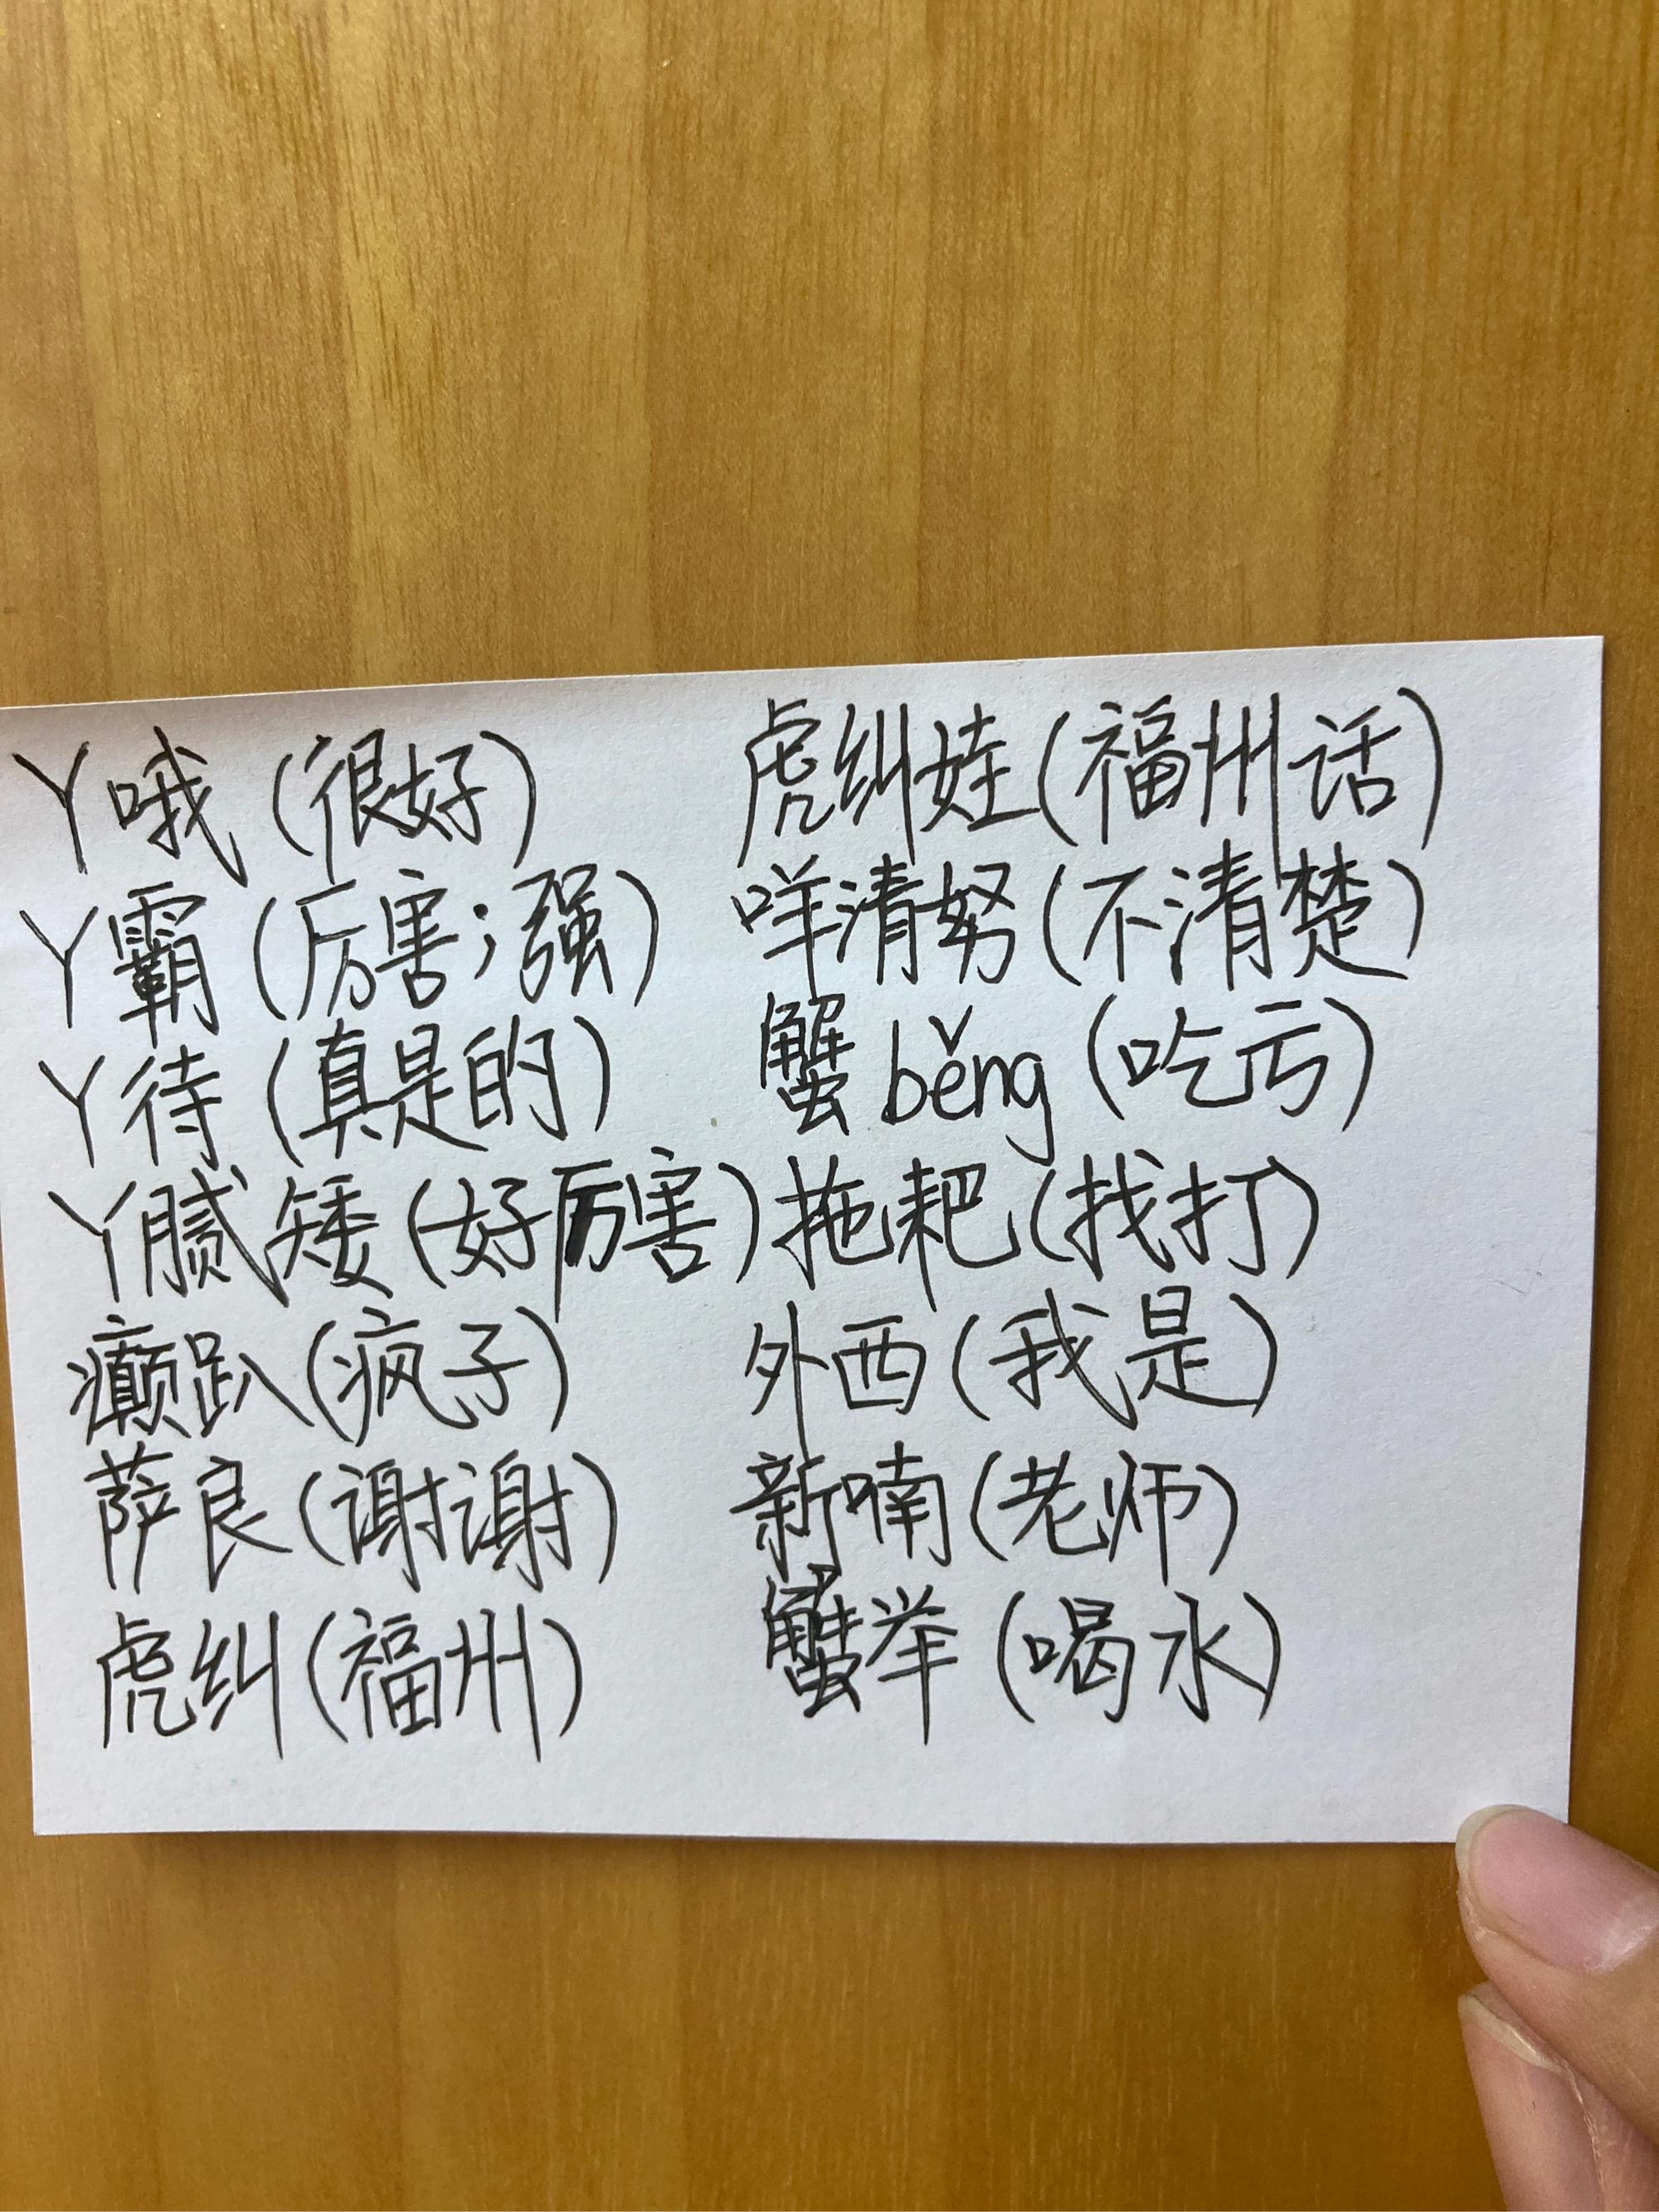 丫哦(很好)
丫霸(厉害;强)
丫待(真是的)
丫腻矮(好厉害)
癫趴(疯子)
萨良(谢谢)
虎纠(福州)
虎纠娃(福州话)
咩清努(不清楚)
蟹běng(吃亏)
拖耙(找打)
外西(我是)
新喃(老师)
蟹举(喝水)